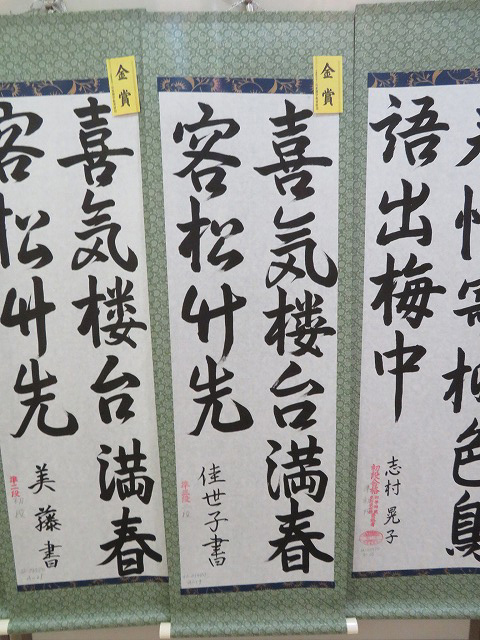 春情寄柳色鳥
語出梅中
志村晃子
金賞
喜気楼台満春
容松竹先
佳世子書
金賞
喜気楼台満春
容松竹先
美藤書